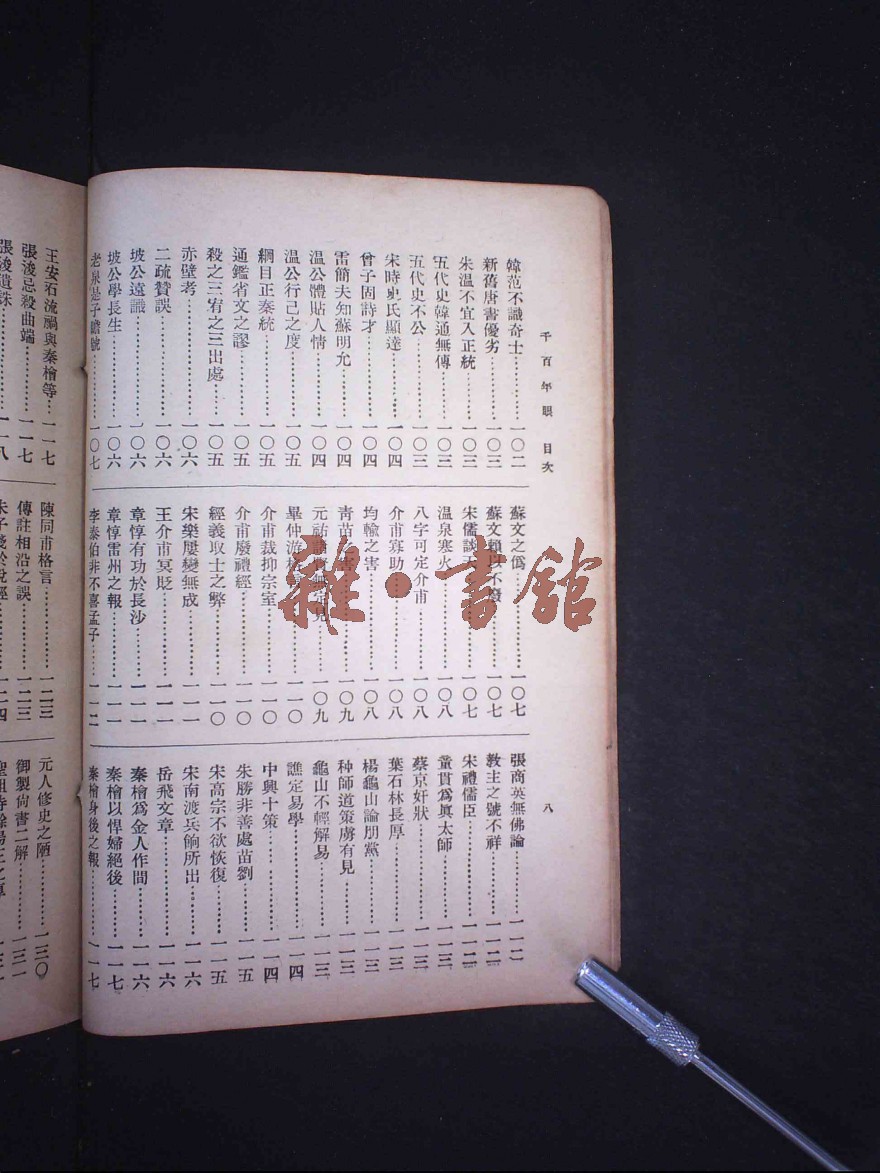 千百年眼 目次
八
韓范不識奇士…………一〇二
新舊唐書優劣…………一〇三
朱溫不宜入正統…………一〇三
五代史韓通無傳…………一〇三
五代史不公…………一〇三
宋時史氏顯達…………一〇四
曾子固詩才…………一〇四
雷簡夫知蘇明允…………一〇四
溫公體貼人情…………一〇四
溫公行己之度…………一〇五
綱目正秦統…………一〇五
通鑑省文之謬…………一〇五
殺之三宥之三出處…………一〇五
赤壁考…………一〇六
二疏贊誤…………一〇六
坡公遠識…………一〇六
坡公學長生…………一〇六
老泉是子瞻號…………一〇七
蘇文之僞…………一〇七
蘇文賴以不廢…………一〇七
宋儒談天…………一〇七
溫泉寒火…………一〇八
八字可定介甫…………一〇八
介甫寡助…………一〇八
均輸之害…………一〇八
青苗之害…………一〇九
元祐諸賢無定見…………一〇九
畢仲游…………一一〇
介甫裁抑宗室…………一一〇
介甫廢禮經…………一一〇
經義取士之弊…………一一〇
宋樂屢變無成…………一一一
王介甫冥貶…………一一一
章惇有功於長沙…………一一一
章惇雷州之報…………一一一
李泰伯非不喜孟子…………一一二
張商英無佛論…………一一二
敎主之號不祥…………一一二
宋禮儒臣…………一一二
童貫爲眞太師…………一一三
蔡京奸狀…………一一三
葉石林長厚…………一一三
楊龜山論朋黨…………一一三
种師道策虜有見…………一一三
龜山不輕解易…………一一三
譙定易學…………一一四
中興十策…………一一四
朱勝非善處苗劉…………一一五
宋高宗不欲恢復…………一一五
宋南渡兵餉所出…………一一六
岳飛文章…………一一六
秦檜爲金人作間…………一一六
秦檜以悍婦絕後…………一一七
秦檜身後之報…………一一七
王安石流禍與秦檜等…………一一七
張浚忌殺曲端…………一一七
張浚遺誅…………一一八
陳同甫格言…………一二三
傳註相沿之誤…………一二三
元人修史之陋…………一三〇
御製尙書二解…………一三一
雜·書館